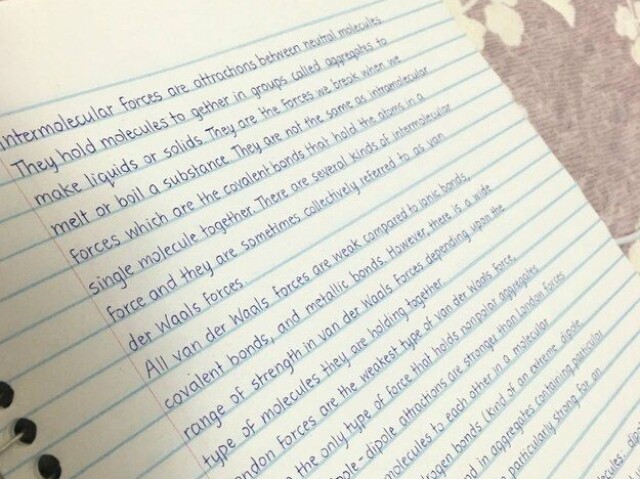 Intermolecular forces are attractions between neutral molecules
They hold molecules to gether in groups called aggregates to
make liquids or solids. They are the forces we break when we
melt or boil a substance. They are not the same as intramolecular
forces which are the covalent bonds that hold the atoms in a
single molecule together. There are several kinds of intermolecular
force and they are sometimes collectively referred to as van
der Waals forces.
All van der Waals forces are weak compared to ionic bonds,
covalent bonds, and metallic bonds. However, there is a wide
range of strength in van der Waals forces depending upon the
type of molecules they are holding together
ndon forces are the weakest type of van der Waals force.
the only type of force that holds nonpolar aggregates
pole-dipole attractions are stronger than London forces
molecules to each other in a molecular
rogen bonds (kind of an extreme dipole
nd in aggregates containing particular
particularly strong for an